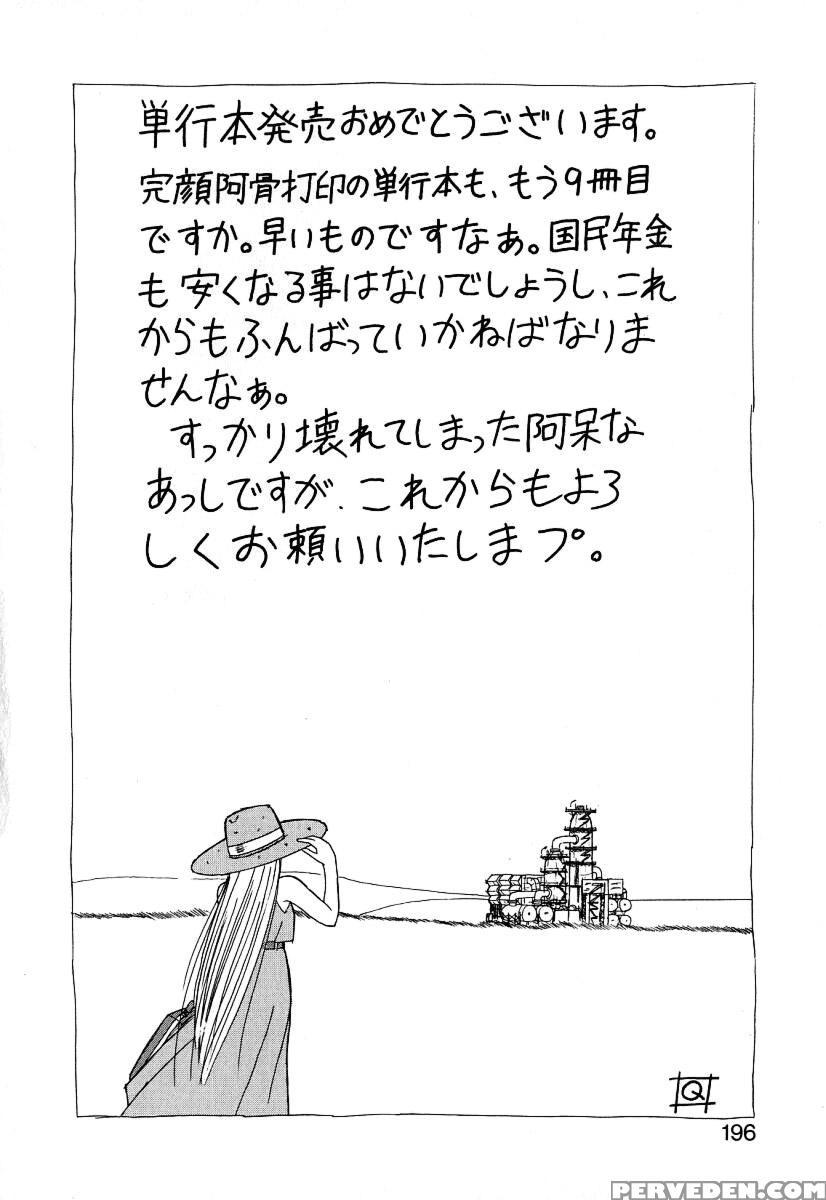 単行本発売おめでとうございます。
完顔阿骨打印の単行本も、もう9冊目
ですか。早いものですなぁ。国民年金
も安くなる事はないでしょうし、これ
からもふんばっていかねばなりま
せんなぁ。
すっかり壊れてしまった阿呆な
あっしですが、これからもよろ
しくお頼いいたしまプ。
Q
196
PERVEDEN.COM